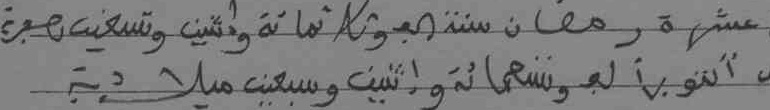 عشرة رمضان سنة الف وثلاثمائة واثنين وتسعين هجرية
أكتوبر ألف وتسعمائة واثنين وسبعين ميلادية